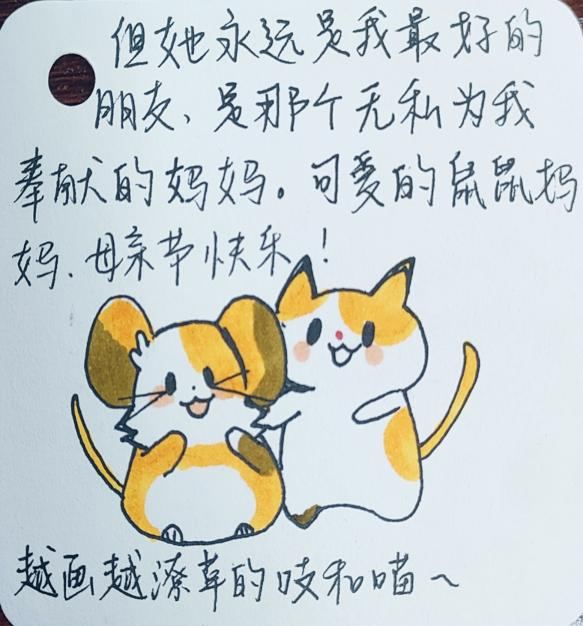 但她永远是我最好的
朋友、是那个无私为我
奉献的妈妈。可爱的鼠鼠妈
妈、母亲节快乐！
越画越潦草的吱和喵~